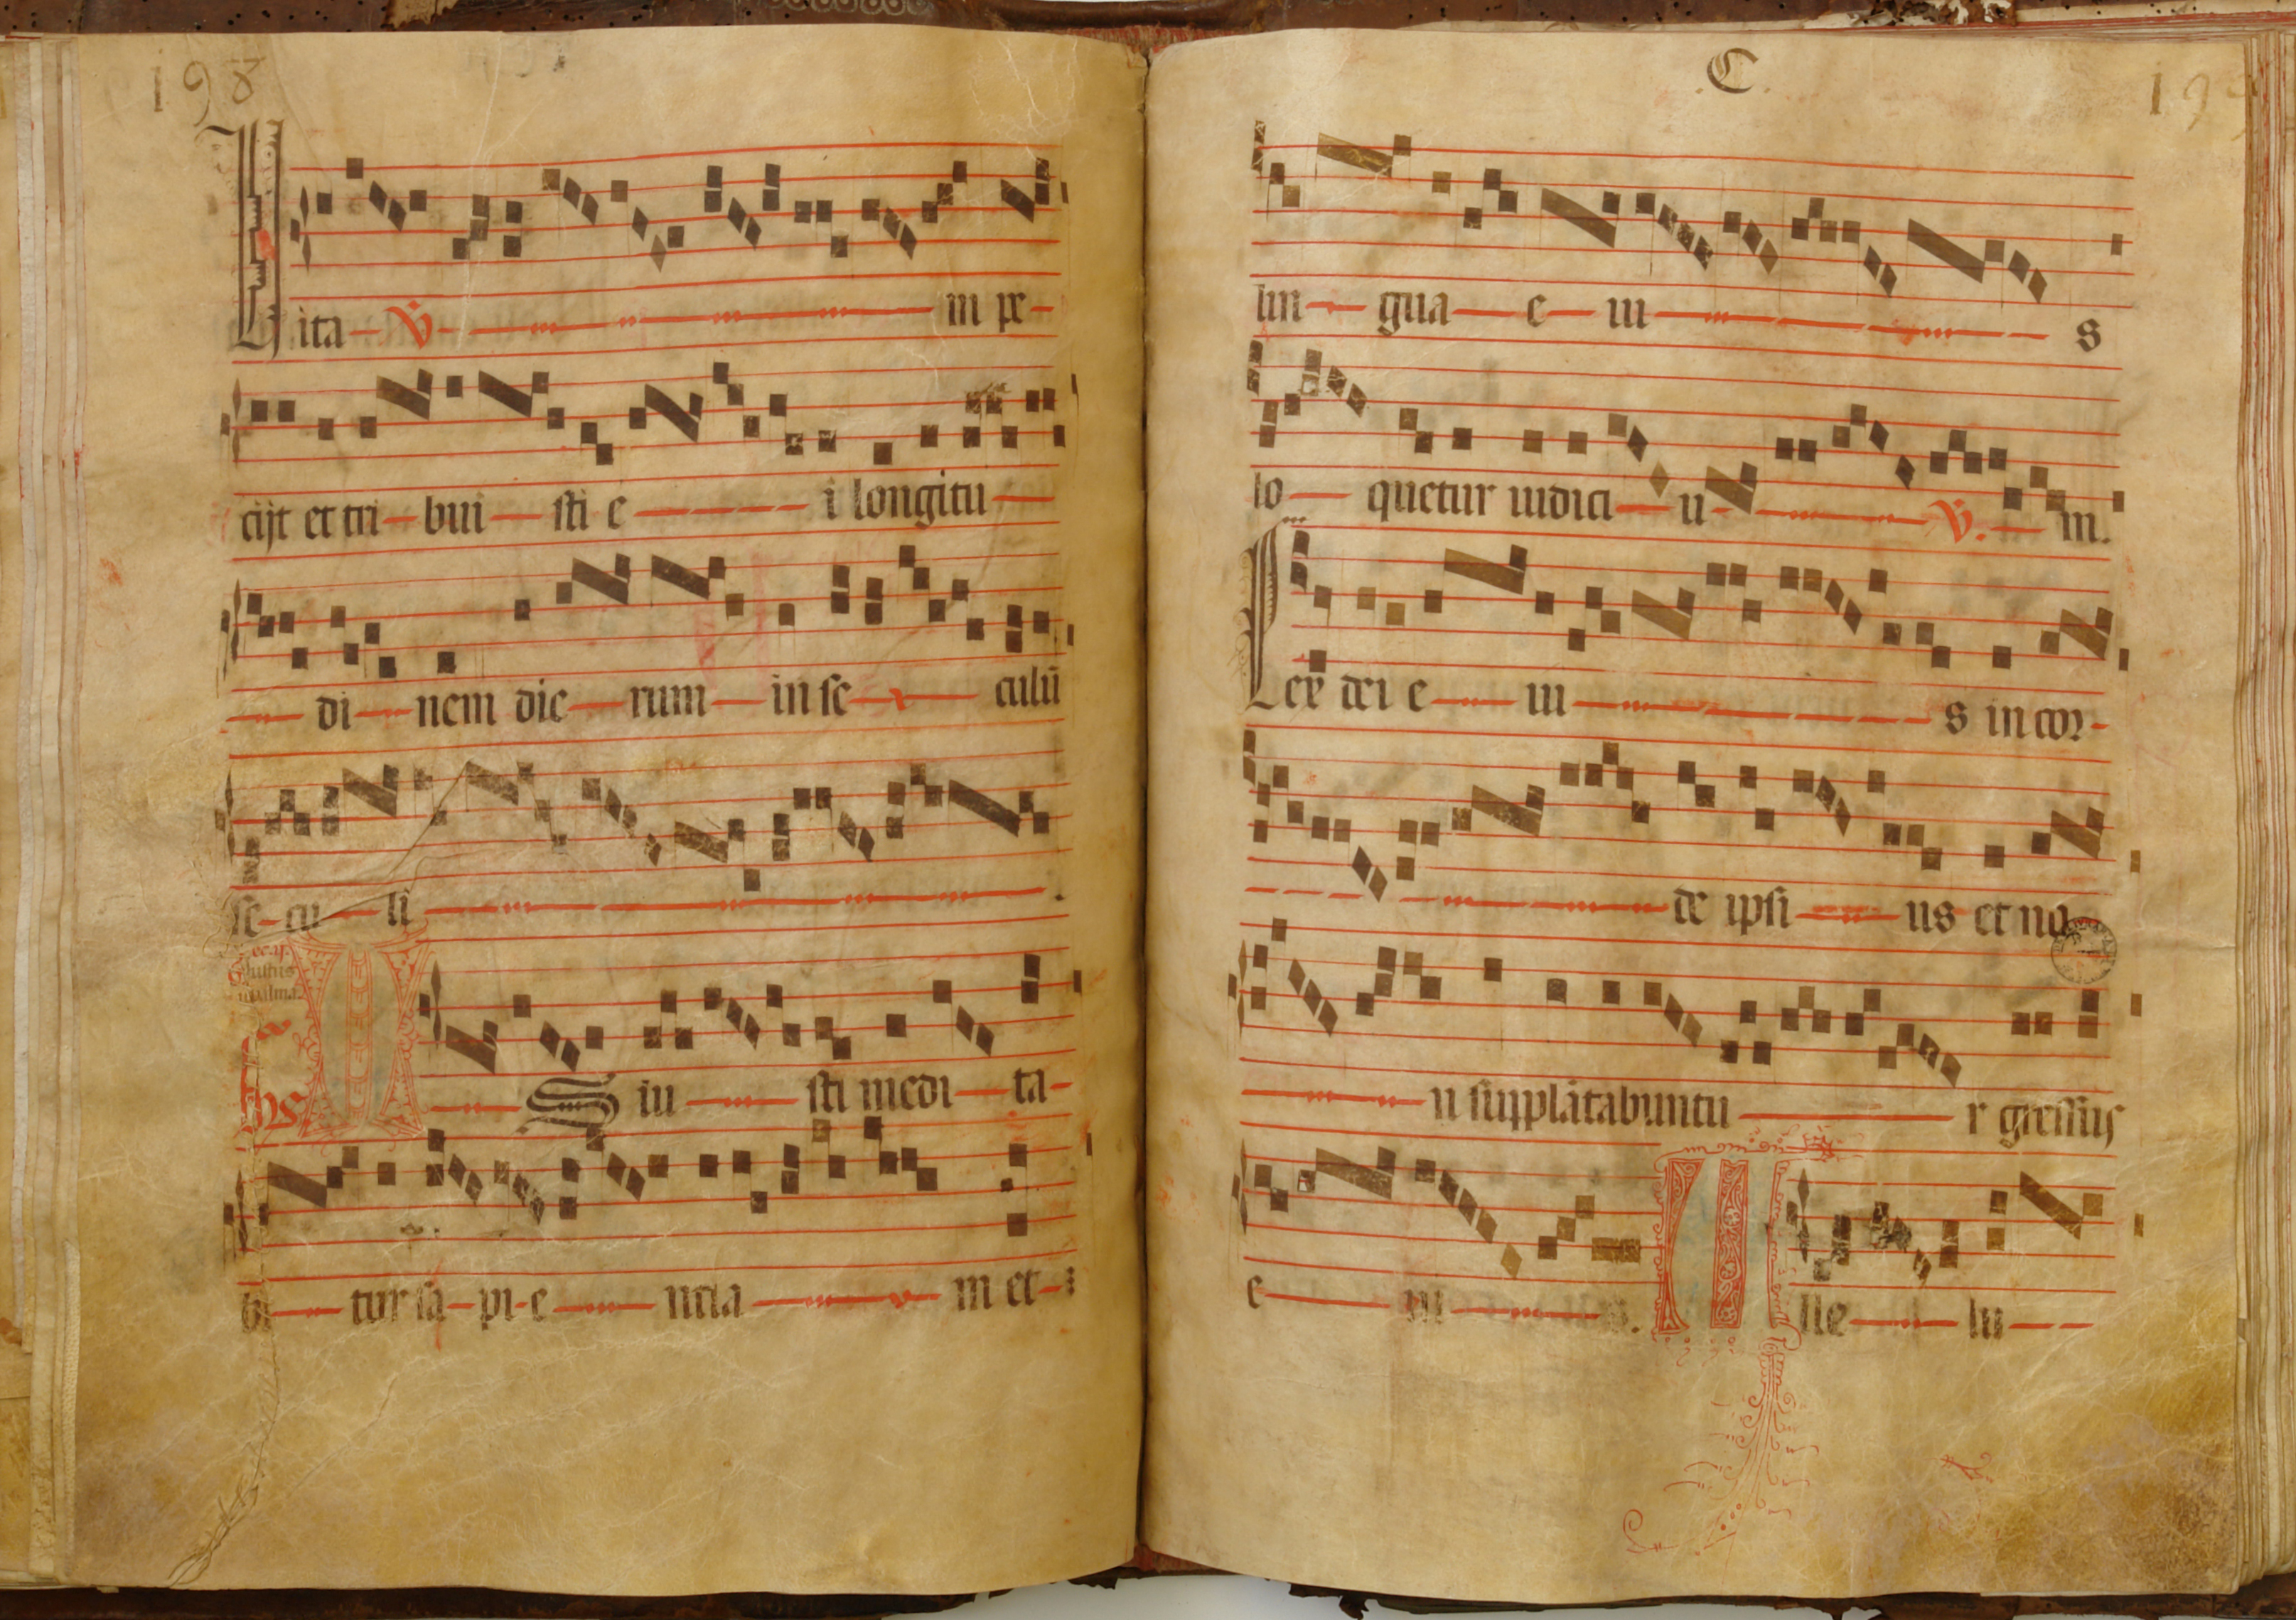 198
Uita ꝟ in pe
cijt et tri bui sti e i longitu
di nem die rum in se culũ
se cu li
S iu sti medi ta
bi tur sa pi e ncia m et
C
lin gua e iu s
lo quetur iudici u ꝟ. in.
Lex dei e iu s in cor
de ipsi us et no
n supplãtabuntu r gressus
e iu s. A lle lu